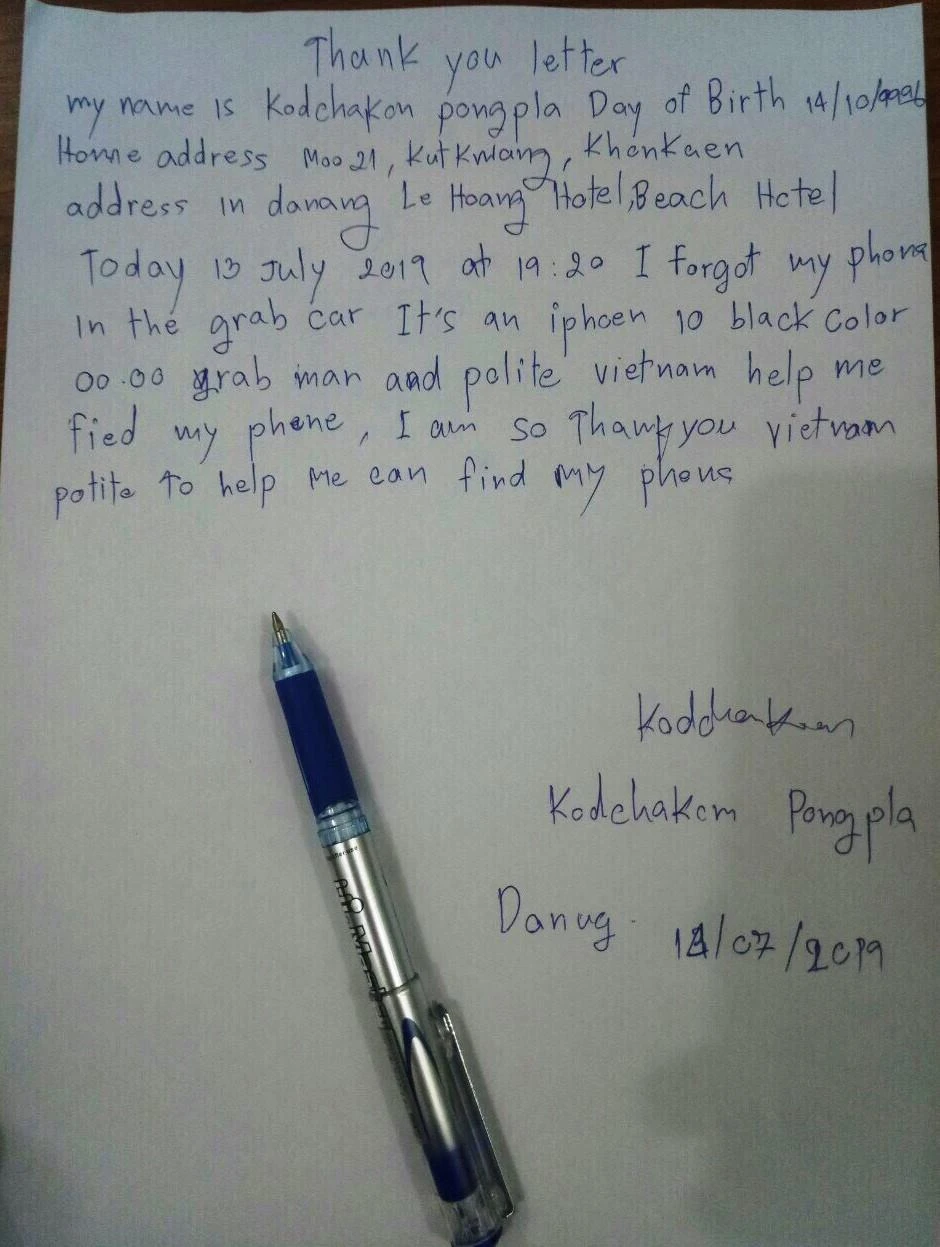 Thank you letter
my name is Kodchakon pongpla Day of Birth 14/10/1996
Home address Moo 21, Kut Kwang, Khonkaen
address in danang Le Hoang Hotel, Beach Hotel
Today 13 July 2019 at 19:20 I forgot my phone
In the grab car It's an iphoen 10 black color
00.00 grab man and polite vietnam help me
fied my phone, I am so Thank you vietnam
potite to help me can find my phone
Kodchakon
Kodchakon Pongpla
Danug. 14/07/2019